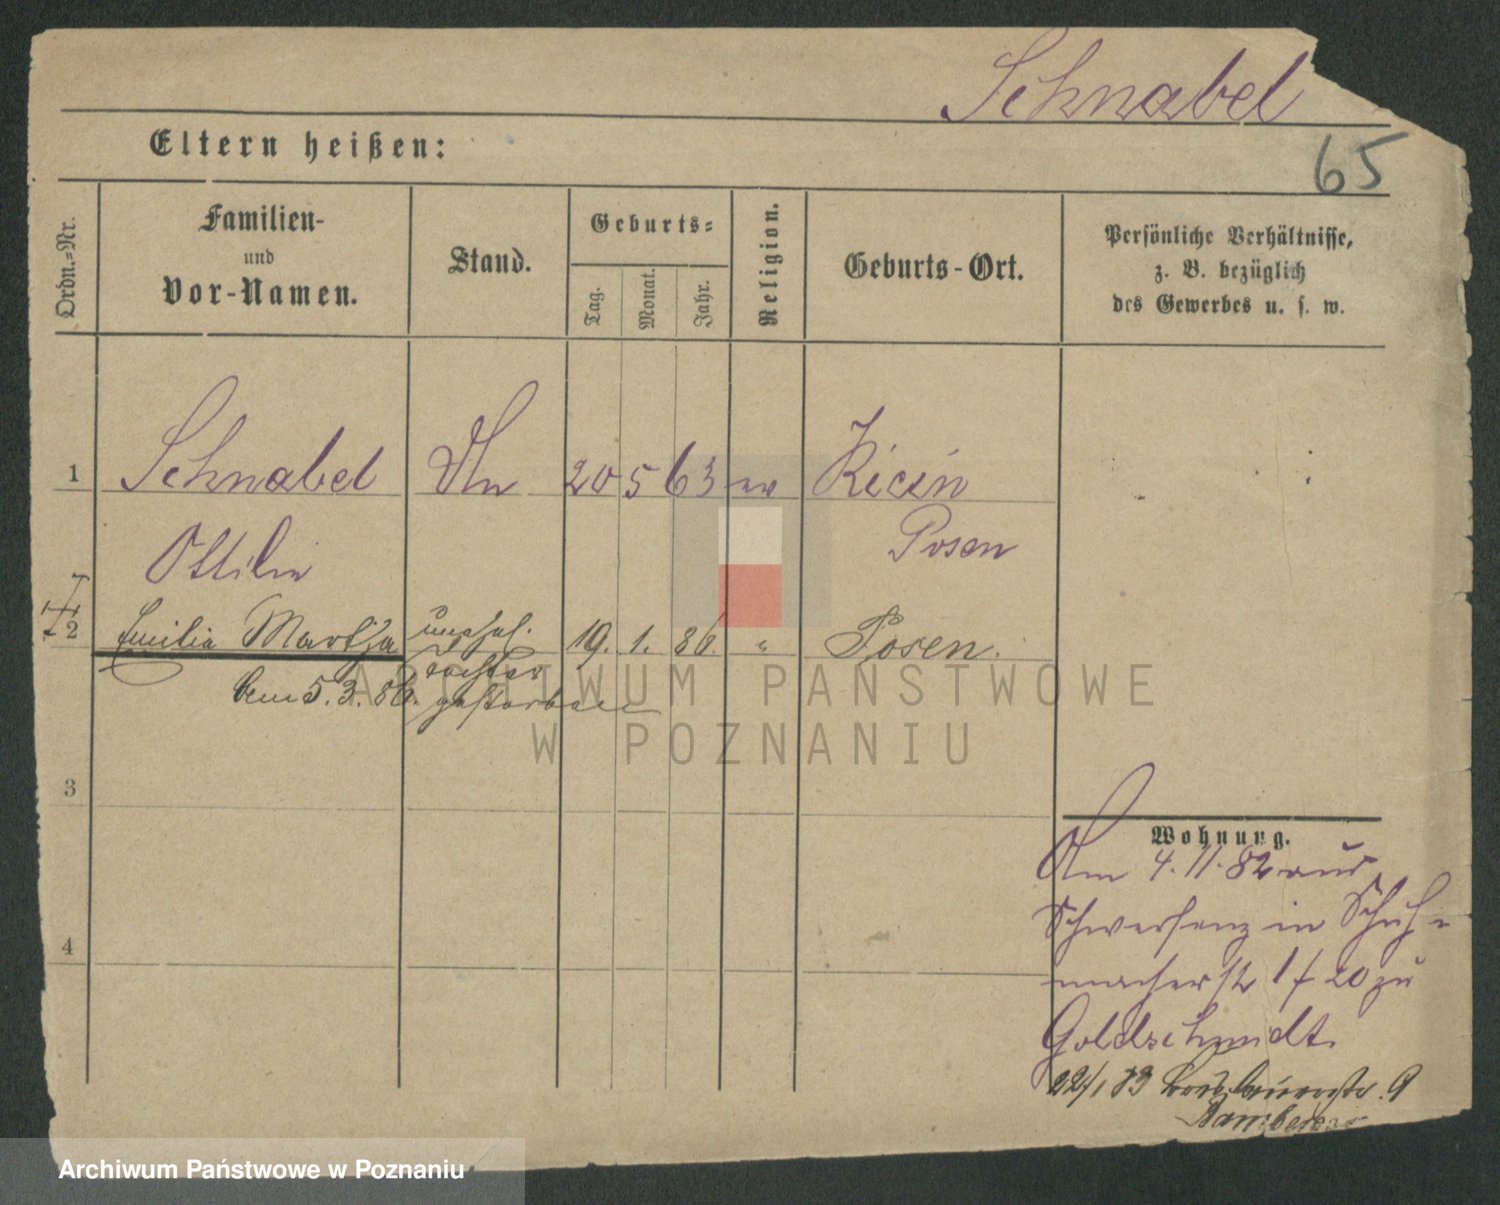 Schnabel
65
Eltern heißen:
Ordn.-Nr.
Familien-
und
Vor-Namen.
Stand.
Geburts-
Tag.
Monat.
Jahr.
Religion.
Geburts-Ort.
Persönliche Verhältnisse,
z. B. bezüglich
des Gewerbes u. s. w.
1 Schnabel 20 5 63 ev Kicin
Ottilie Posen
2 Emilia Martha unehel. 19. 1. 86. " Posen.
Tochter
den 5. 3. 86. gestorben
3
4
Wohnung.
Am 4.11.82 aus
Schwersenz in Schuh-
macherstr 1 / 20 zu
Goldschmidt.
22/1 83 9
Bamberger
ARCHIWUM PAŃSTWOWE
W POZNANIU
Archiwum Państwowe w Poznaniu